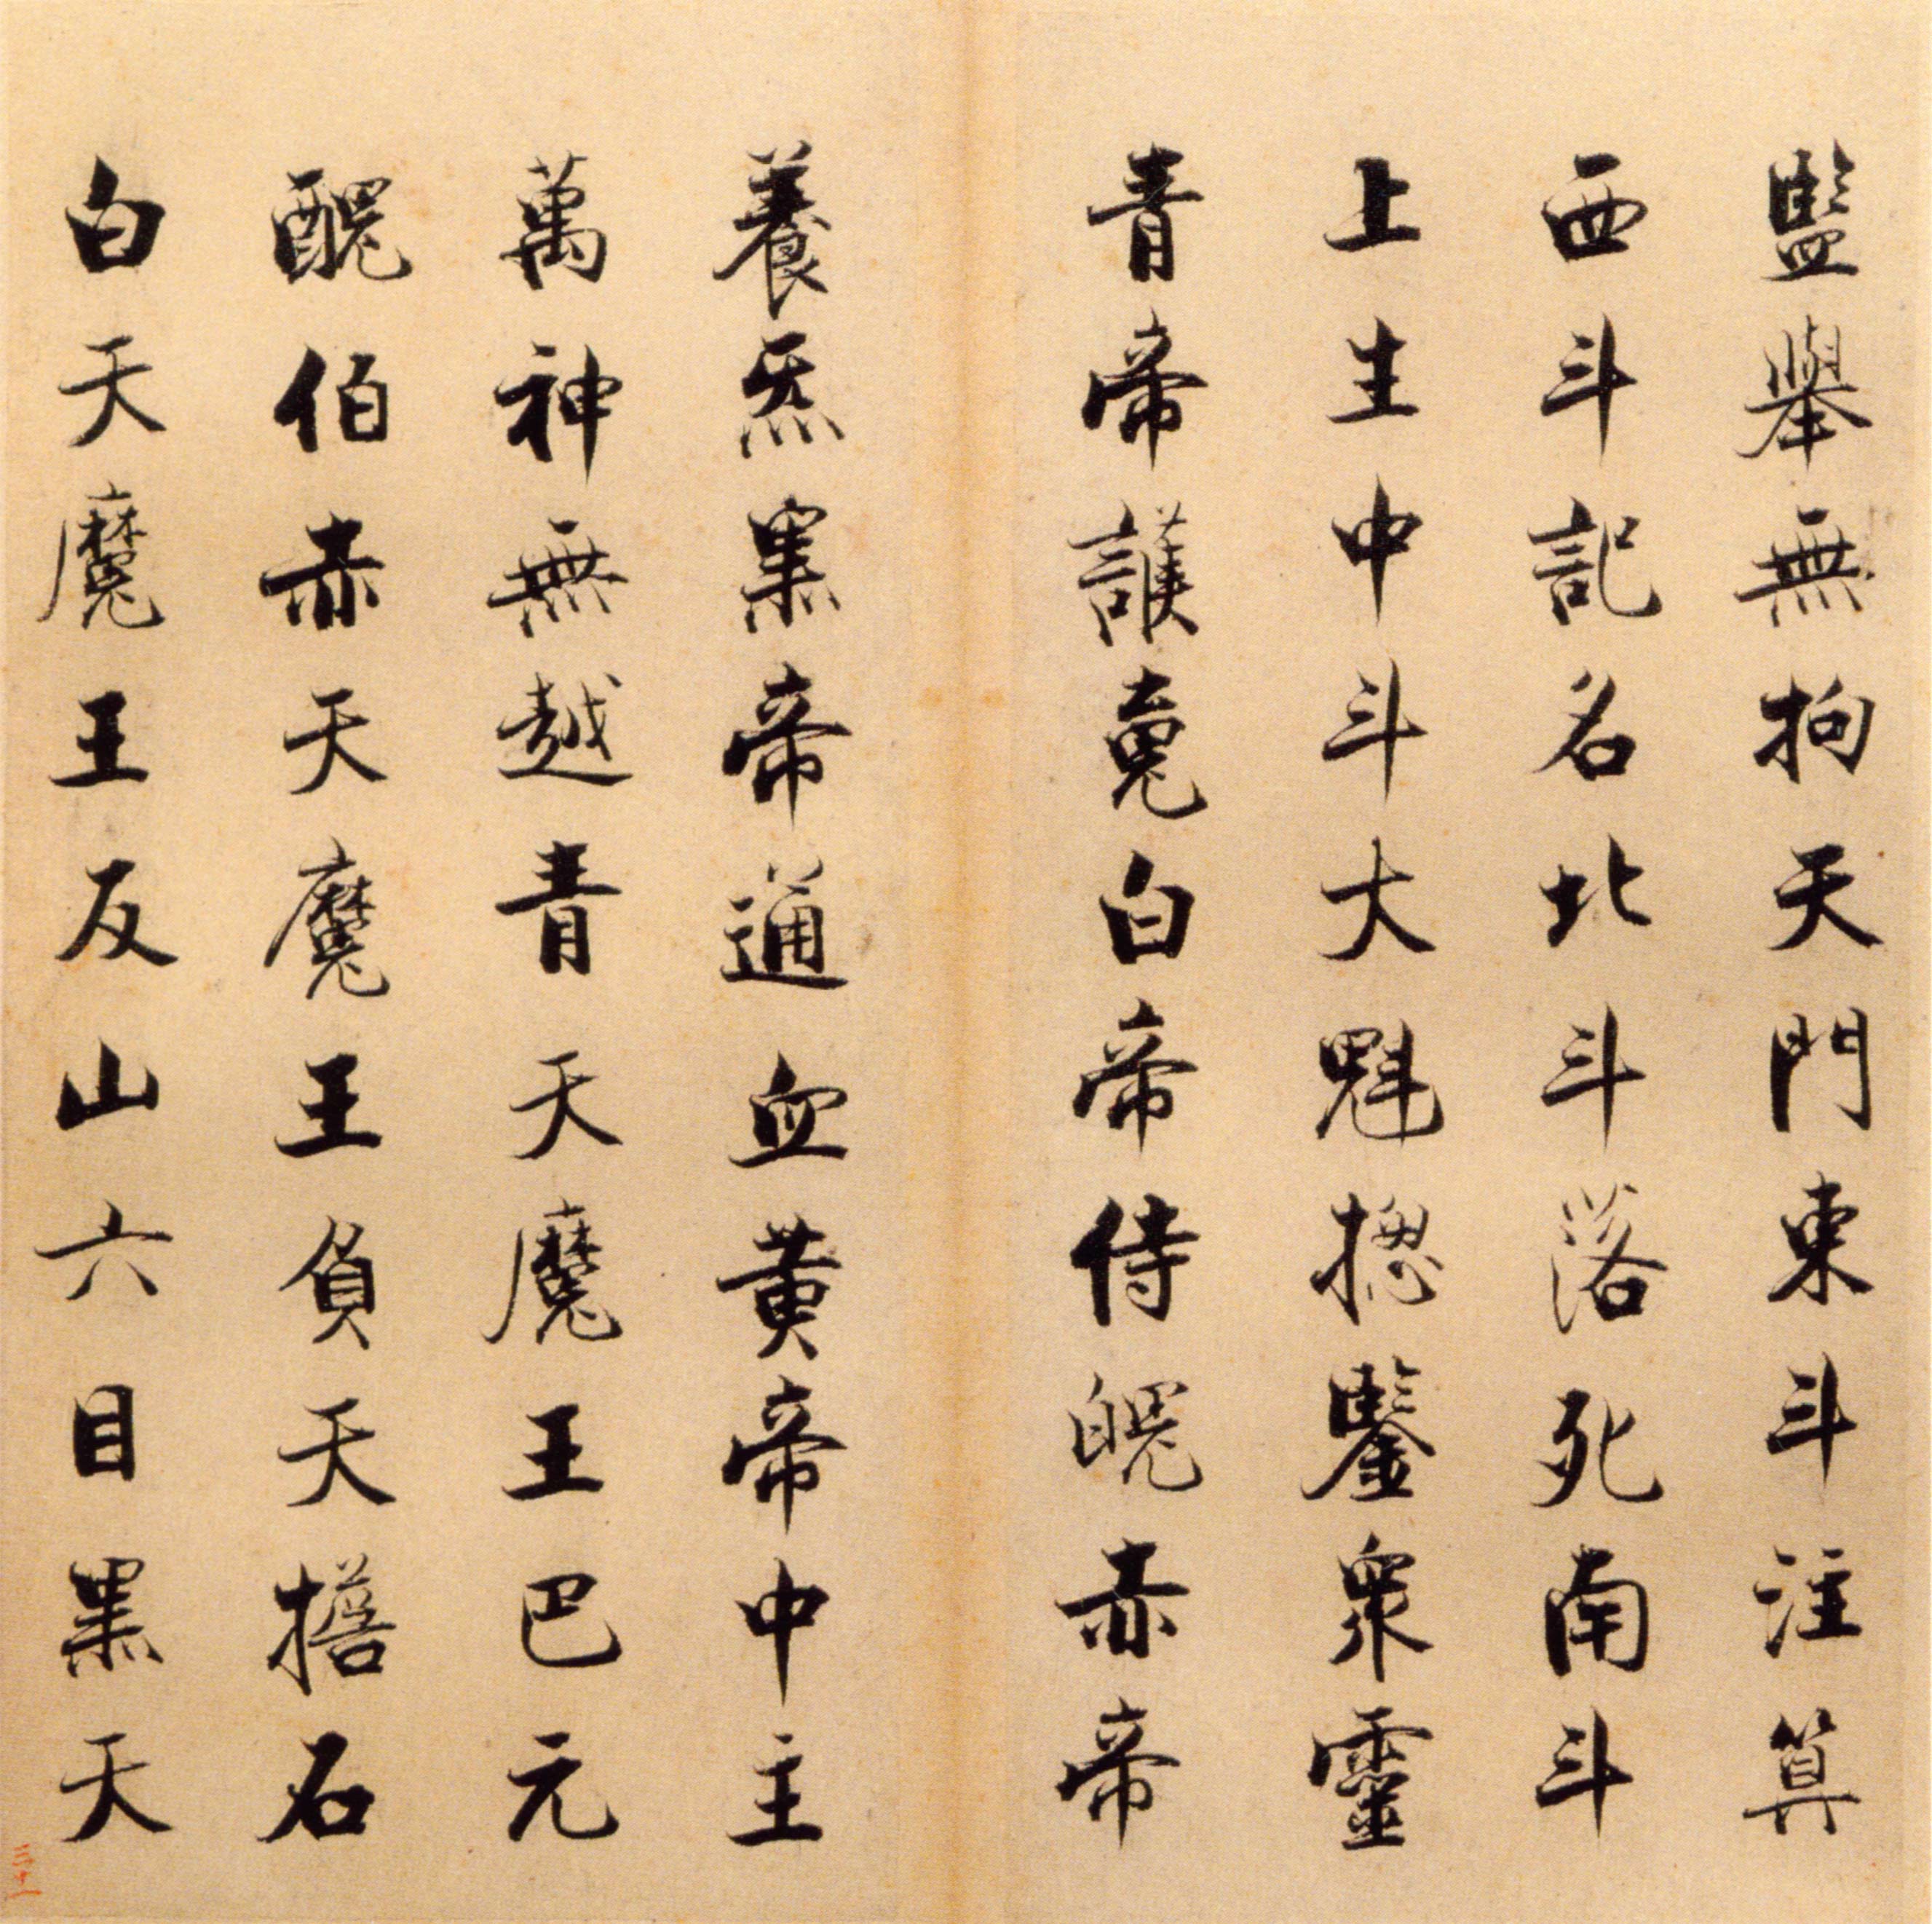 監舉無拘天門東斗注算
西斗記名北斗落死南斗
上生中斗大魁摠鑒衆靈
青帝護䰟白帝侍魄赤帝
養炁黑帝通血黃帝中主
萬神無越青天魔王巴元
醜伯赤天魔王負天擔石
白天魔王反山六目黑天
三十一